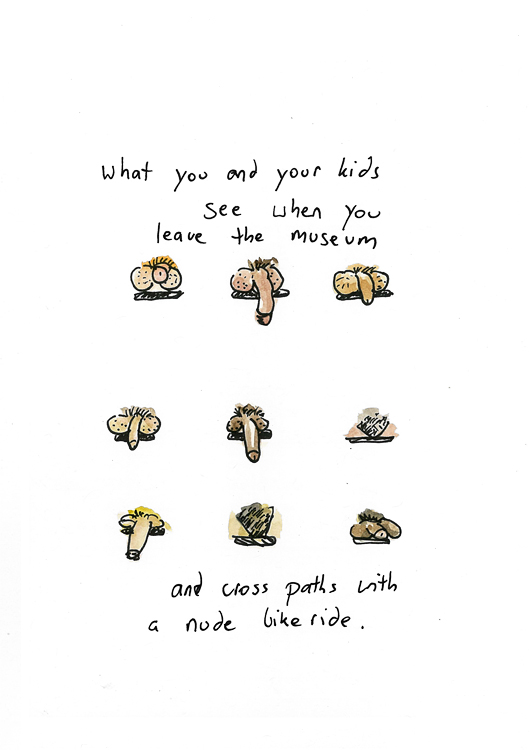 what you and your kids
see when you
leave the museum
and cross paths with
a nude bike ride.